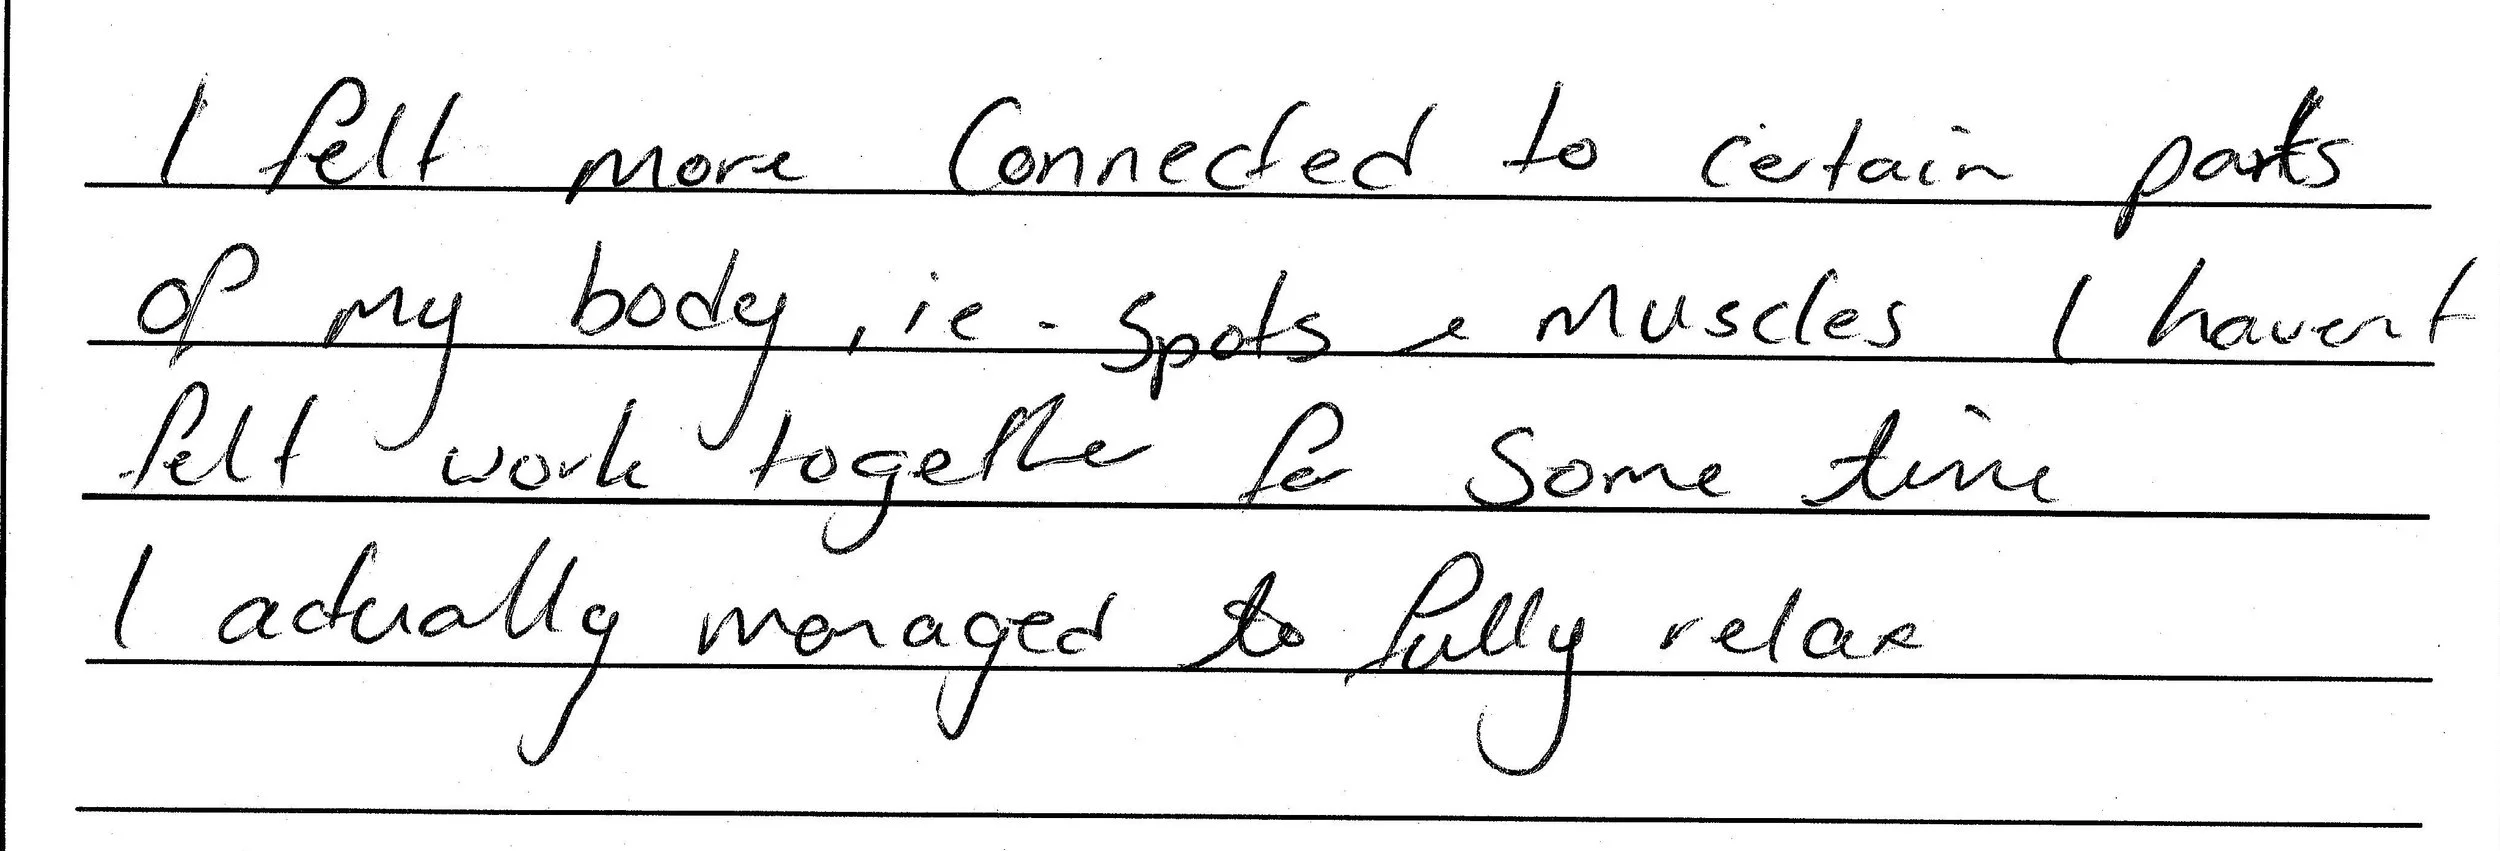 I felt more Connected to certain parts
of my body, ie - Spots & Muscles I havent
felt work together for Some time
I actually managed to fully relax